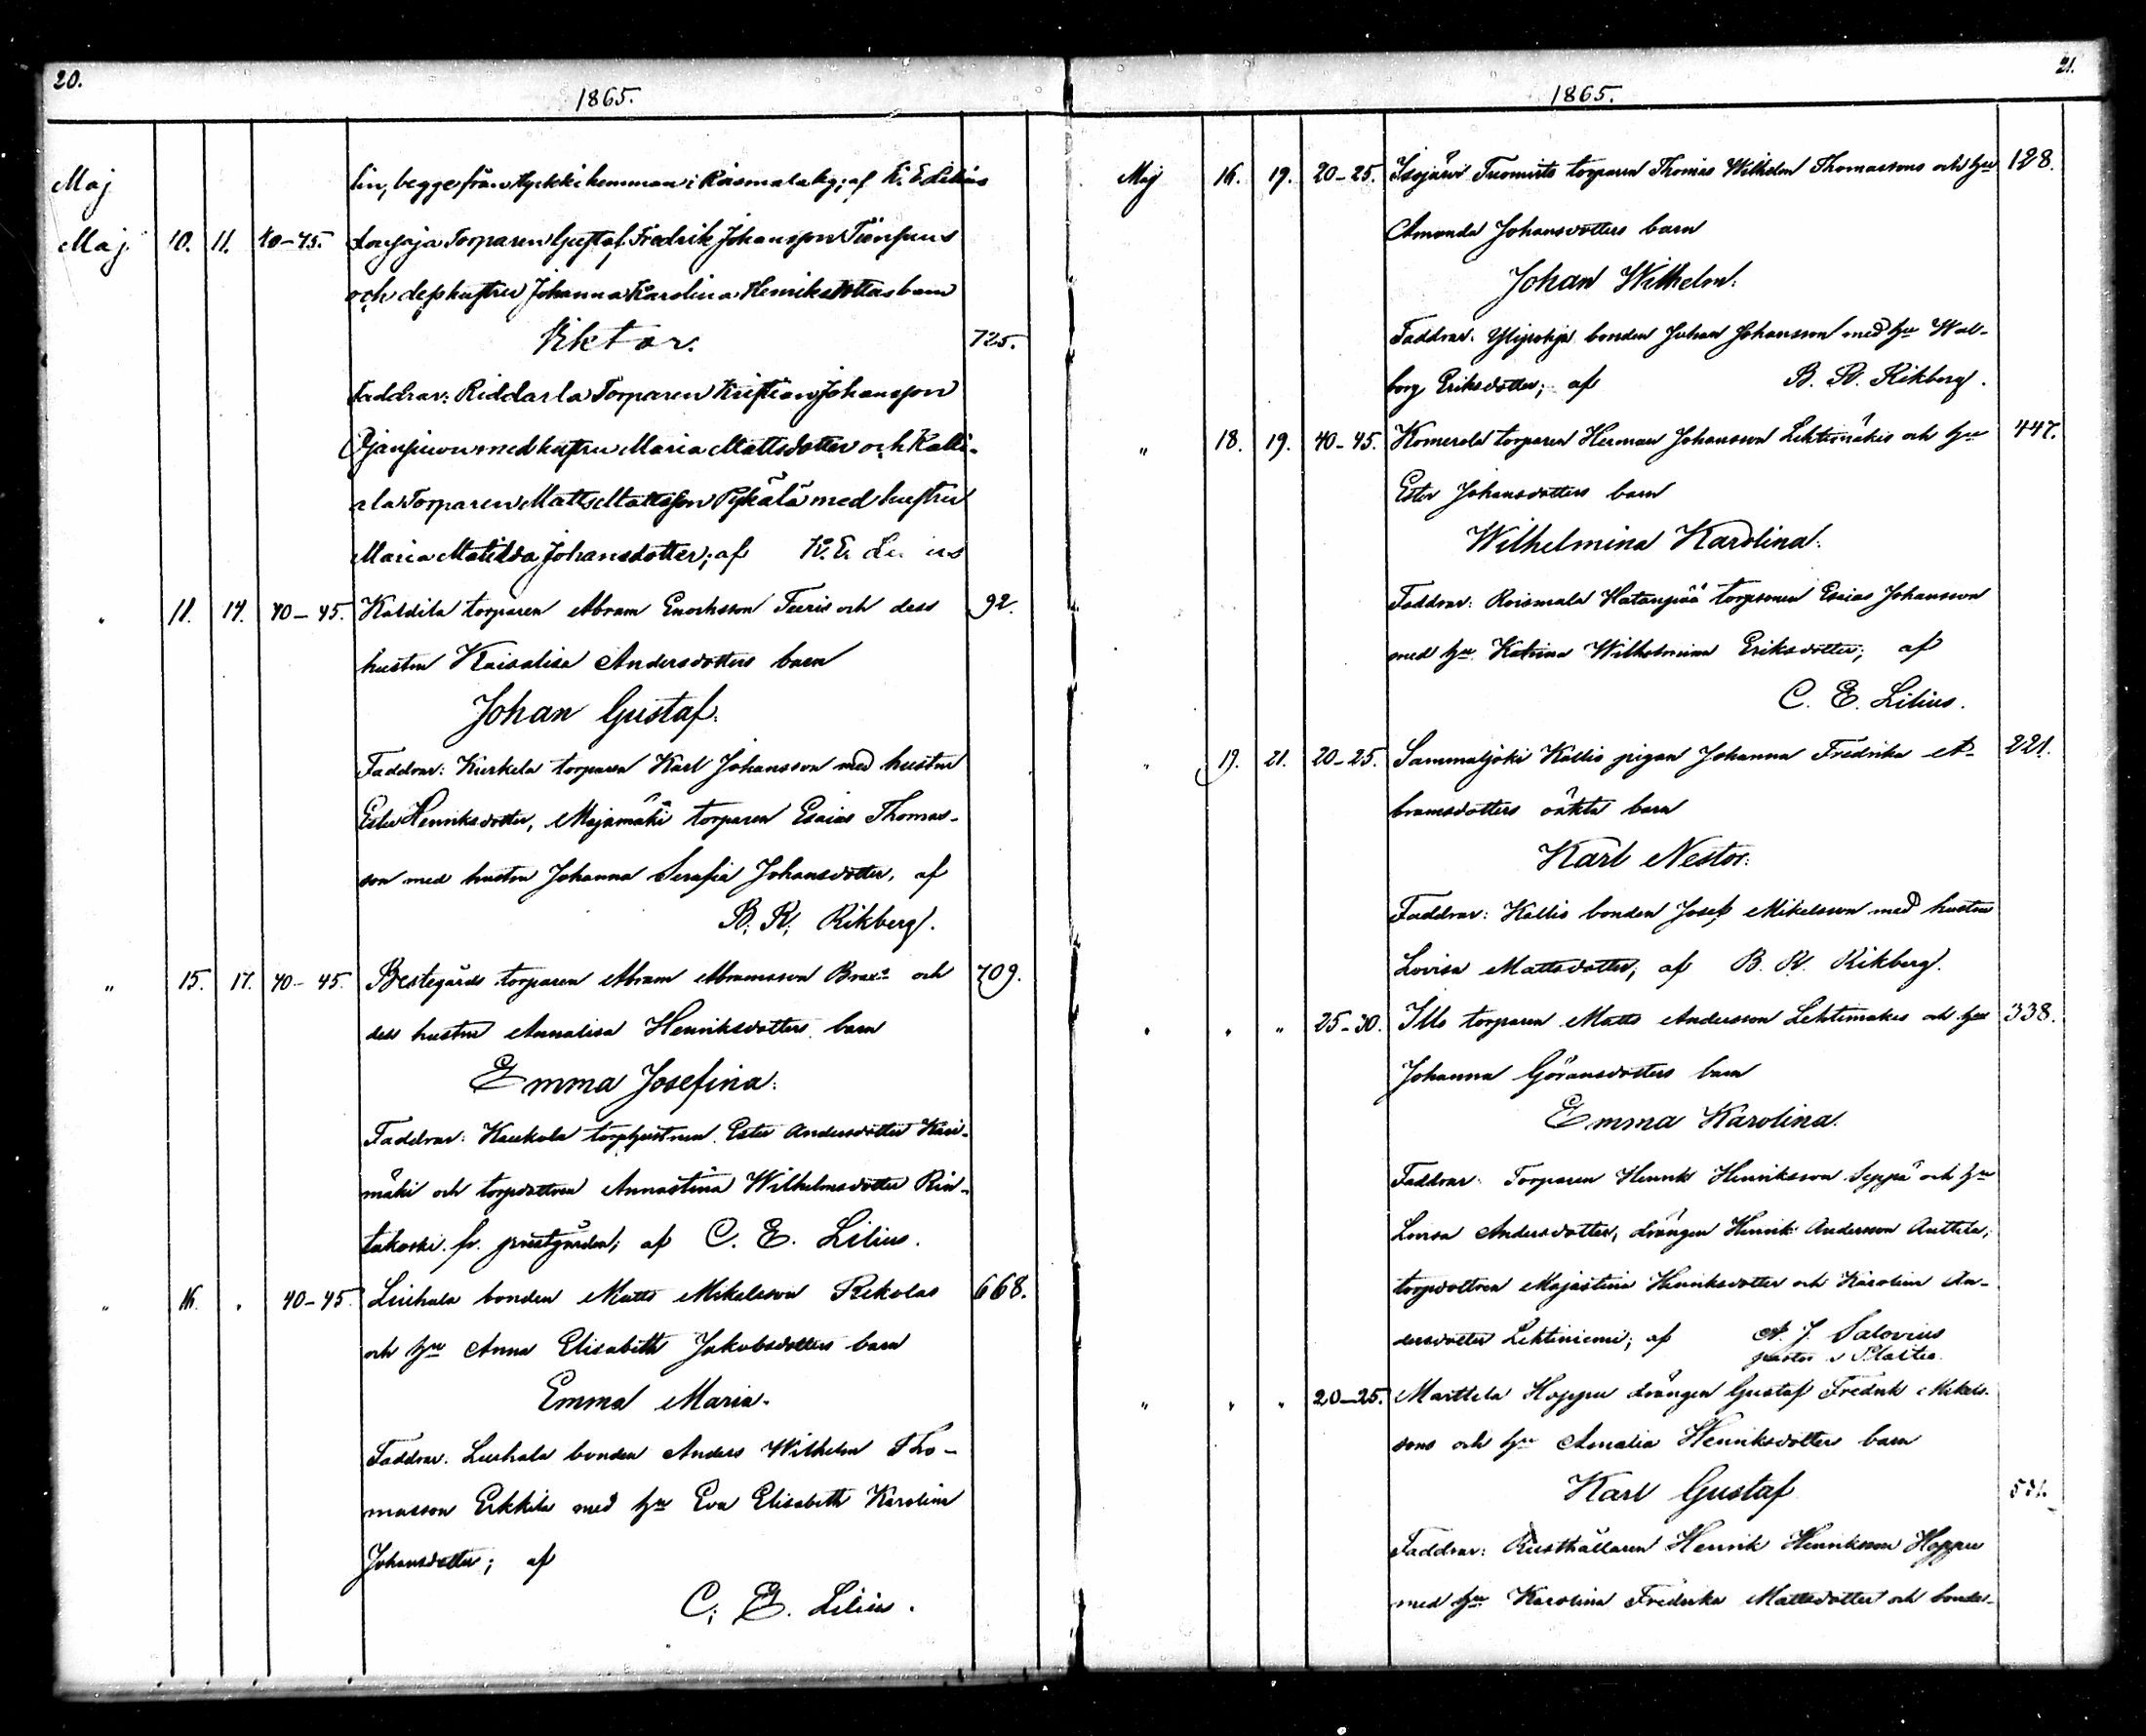 20.
1865.
Maj lin, begge från Kyrkki hemman i Roismala by; af K. E. Lilius
Maj. 10. 11. 40-45. Torparen Gustaf Fredrik Johansson
och dess hustru Johanna Karolina Henriksdotters barn
Viktor. 725.
Faddrar: Riddarla Torparen Kristian Johansson
Ojansivu med hustru Maria Mattsdotter och Kalli-
ala Torparen Matts Mattsson Pykälä med hustru
Maria Matilda Johansdotter; af K. E.
" 11. 14. 40-45. Kaldila torparen Abram Enochsson Feeris och dess 92.
hustru Kaisalisa Andersdotters barn
Johan Gustaf.
Faddrar: Kurkela torparen Karl Johansson med hustru
Ester Henriksdotter, Majamäki torparen Esaias Thomas-
son med hustru Johanna Serafia Johansdotter, af
B. R. Rikberg.
" 15. 17. 40-45. Bestegårds torparen Abram Abramsson och 709.
dess hustru Annalisa Henriksdotters barn
Emma Josefina.
Faddrar: Kaukola torphustrun Ester Andersdotter
mäki och torpdottren Annastina Wilhelmsdotter Rin-
takoski fr. prestgården; af C. E. Lilius.
" 16. " 40-45. Liuhala bonden Matts Mikelsson Rekolas 668.
och hu Anna Elisabeth Jakobsdotters barn
Emma Maria.
Faddrar: Liuhala bonden Anders Wilhelm Tho-
masson Erkkila med hu Eva Elisabeth Karolina
Johansdotter; af
C. E. Lilius.
21.
1865.
Maj 16. 19. 20-25. Isojärvi torparen Thomas Wilhelm Thomassons och hu 128.
Amanda Johansdotters barn
Johan Wilhelm.
Faddrar: Ylipohja bonden Johan Johansson med hu Wal-
borg Eriksdotter; af B. R. Rikberg.
" 18. 19. 40-45. Komerola torparen Herman Johansson Lehtimäkis och hu 447.
Ester Johansdotters barn
Wilhelmina Karolina.
Faddrar: Roismala Hatanpää torparen Esaias Johansson
med hu Katrina Wilhelmina Eriksdotter; af
C. E. Lilius.
" 19. 21. 20-25. Sammaljoki Kallis pigan Johanna Fredrika A- 221.
bramsdotters oäkta barn
Karl Nestor.
Faddrar: Kallis bonden Josef Mikelsson med hustru
Lovisa Mattsdotter, af B. R. Rikberg.
" " " 25-30. Illo torparen Matts Andersson Lehtimäkis och hu 338.
Johanna Göransdotters barn
Emma Karolina.
Faddrar: Torparen Henrik Henriksson Seppä och hu
Lovisa Andersdotter, drängen Henrik Andersson Anttila,
torpdottren Majastina Henriksdotter och Karolina An-
dersdotter Lehtiniemi; af A. J. Salovius
pastor i
" " " 20-25. Marttila Hoppu drängen Gustaf Fredrik Mikels-
sons och hu Amalia Henriksdotters barn
Karl Gustaf
Faddrar: Rusthållaren Henrik Henriksson Hoppu
med hu Karolina Fredrika Mattsdotter och bonde-